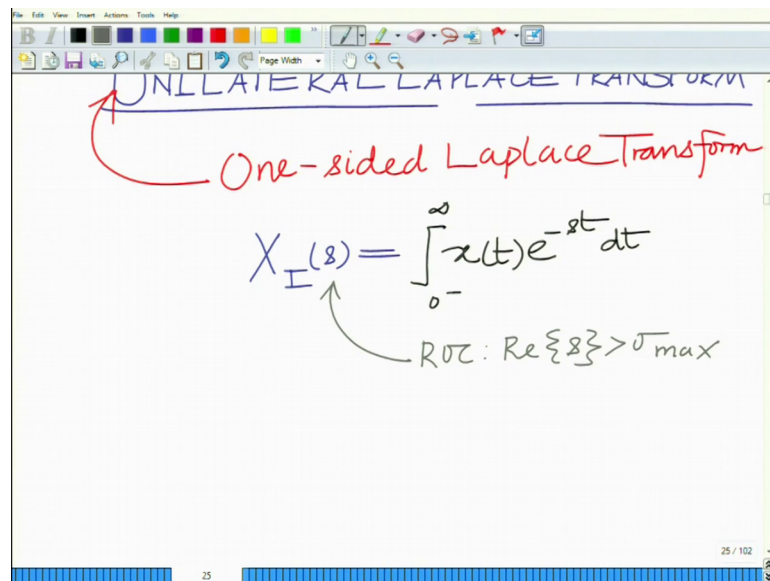 File Edit View Insert Actions Tools Help
B I
Page Width
UNILATERAL LAPLACE TRANSFORM
One-sided Laplace Transform
X_I(s) = ∫_{0^-}^{∞} x(t)e^{-st} dt
ROC: Re{s} > σ_max
25 / 102
25